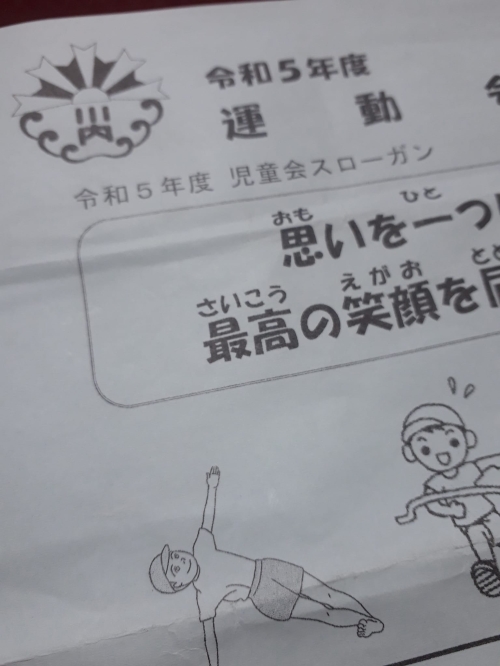 川内
令和5年度
運動
令和5年度 児童会スローガン
おも ひと
思いを一つ
さいこう えがお とど
最高の笑顔を